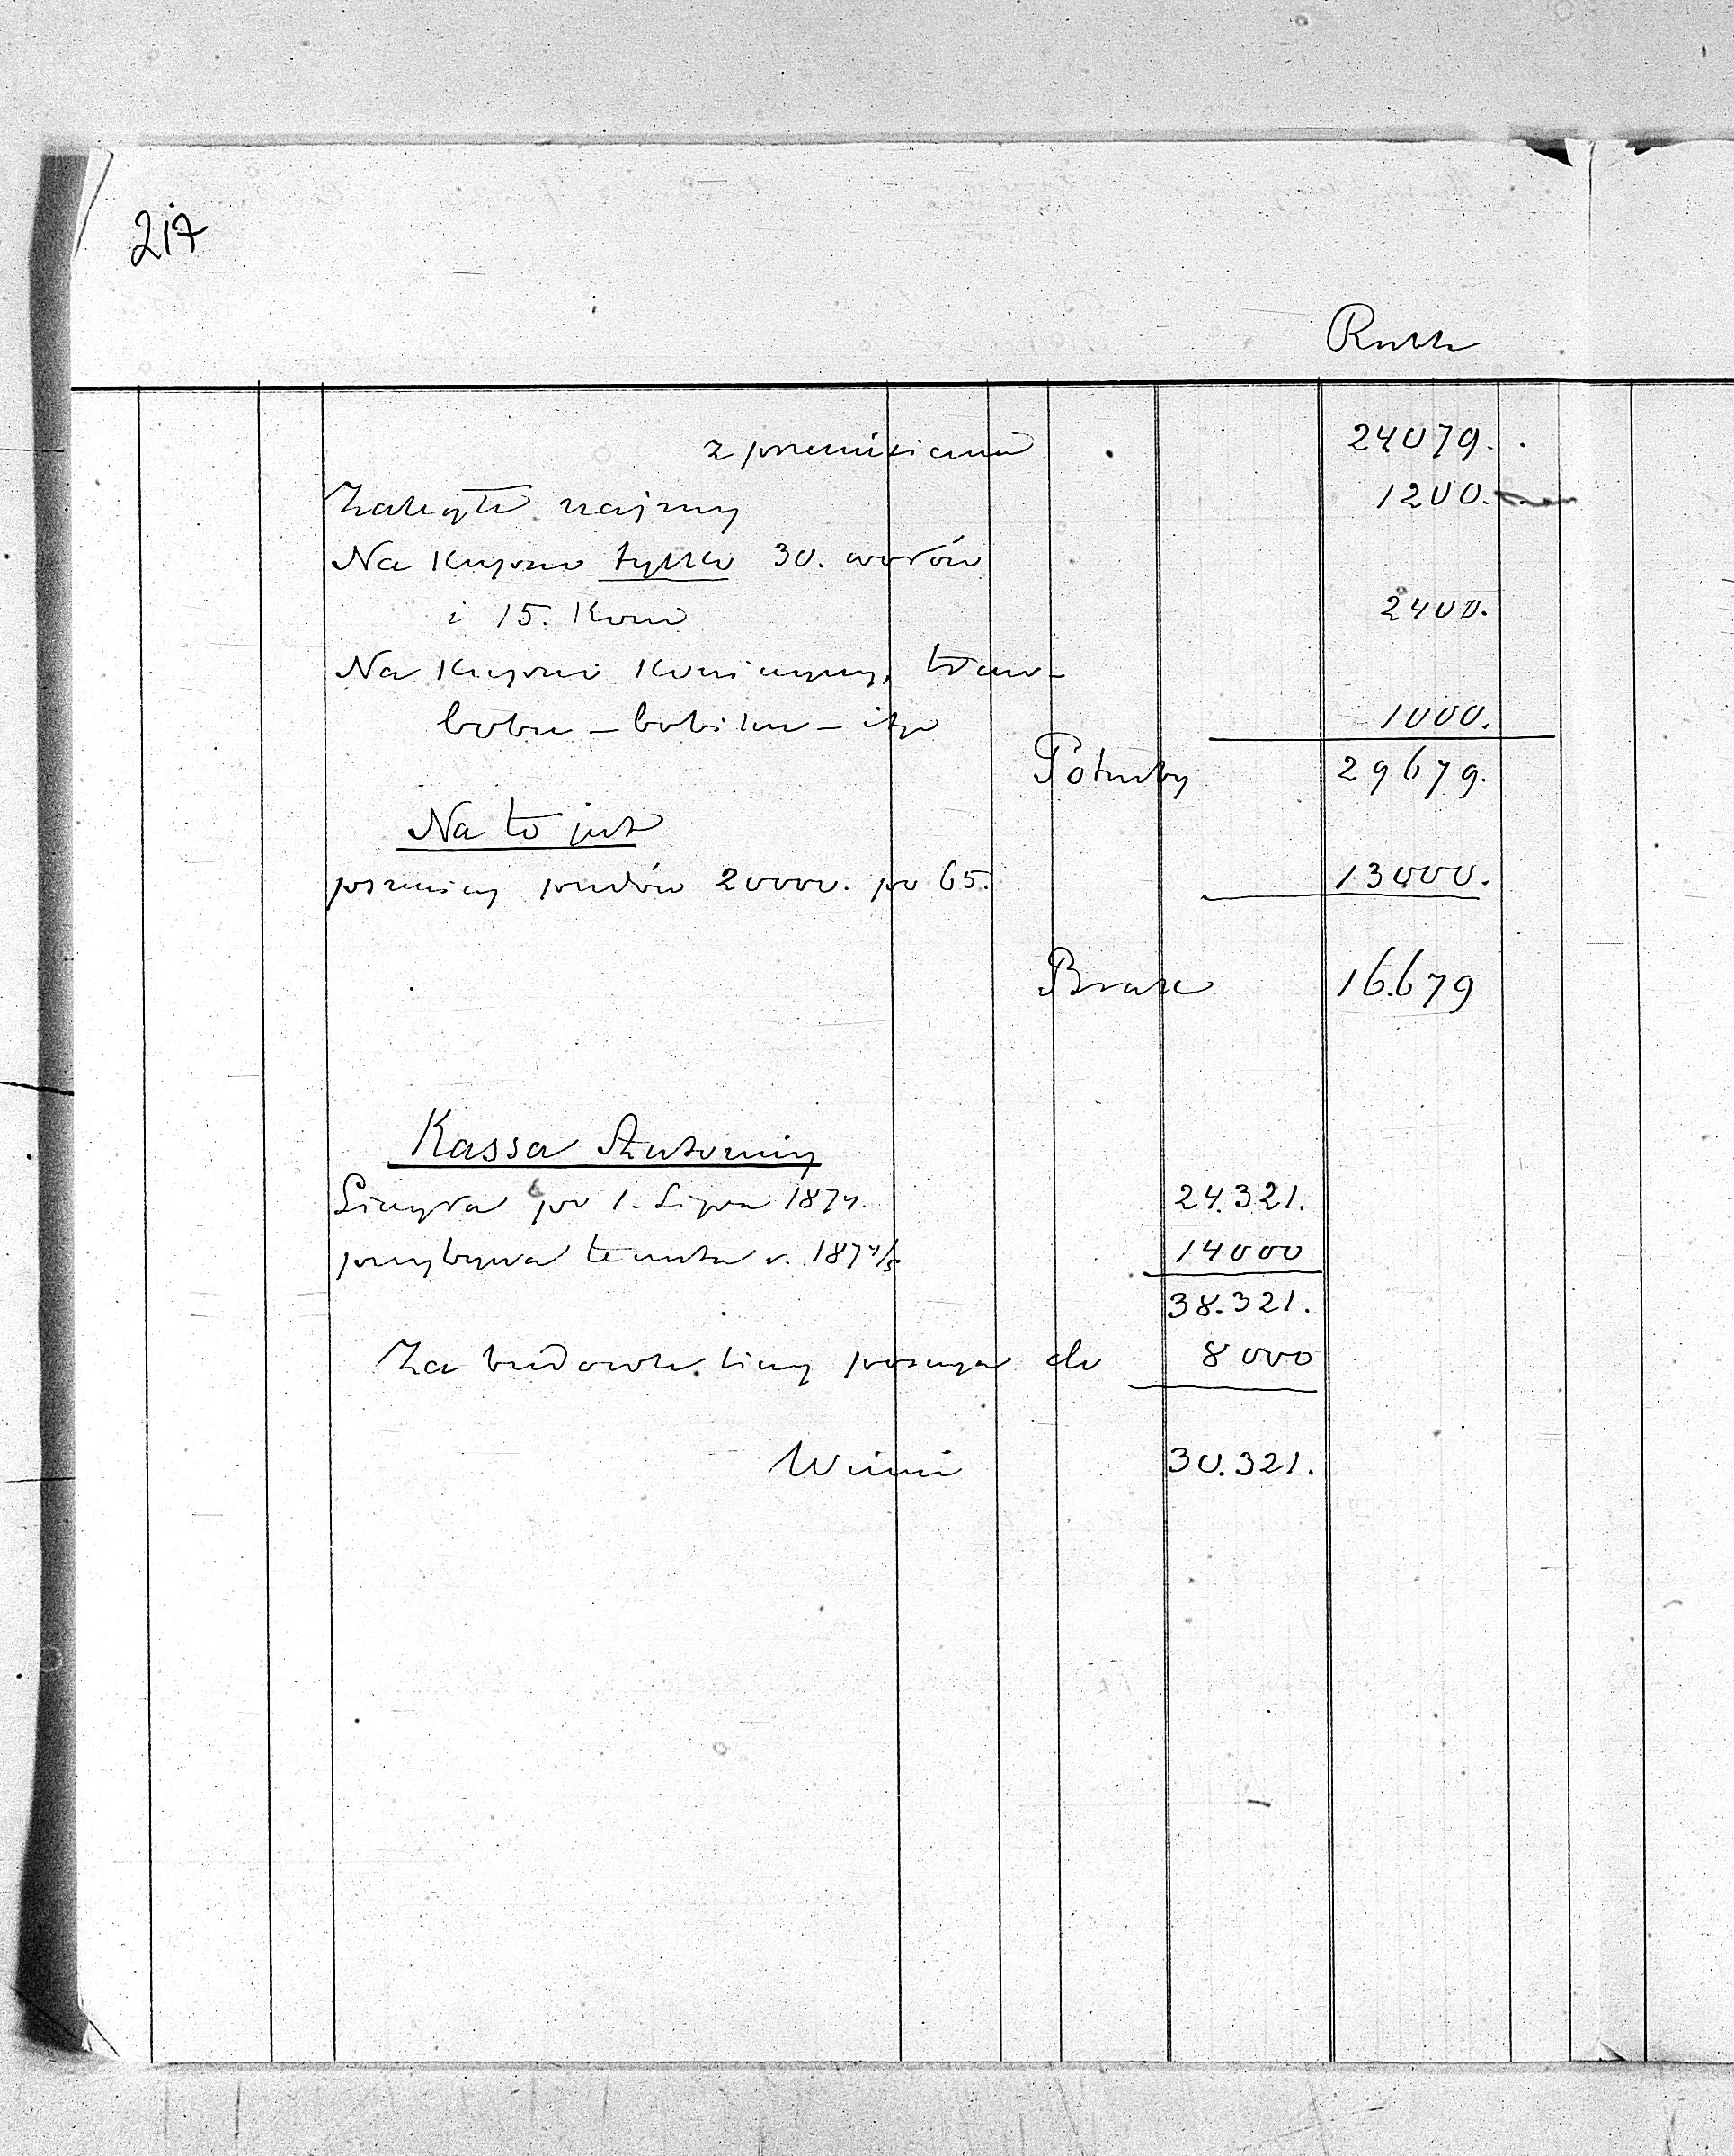 217
Rubli
z przeniesienia 24079.
Zaległe najmy 1200.
Na kupno tylko 30. wołów
i 15. koni 2400.
Na kupno koniczyny, traw-
bobu - bobiku - itp 1000.
Potrzeby 29679.
Na to jest
pszenicy pudów 20000. po 65. 13000.
Brak 16.679
Kassa
po 1. Lipca 1874. 24.321.
przybywa te r. 1874/5 14000
38.321.
Za 8000
Winni 30.321.